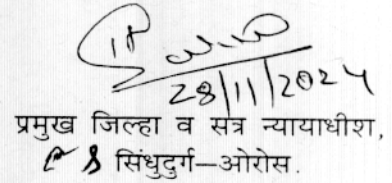 28/11/2024
प्रमुख जिल्हा व सत्र न्यायाधीश,
सिंधुदुर्ग–ओरोस.